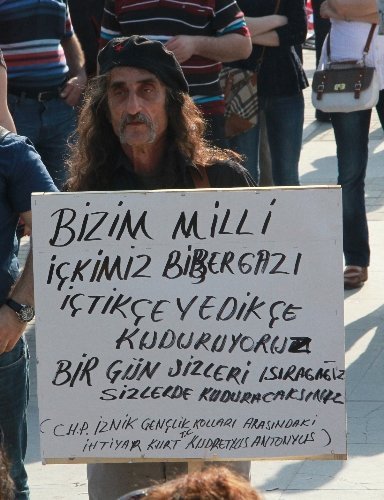 BİZİM MİLLİ
İÇKİMİZ BİBERGAZI
İÇTİKÇE YEDİKÇE
KUDURUYORUZ
BİR GÜN SİZLERİ ISIRACAĞIZ
SİZLERDE KUDURACAKSINIZ
(C.H.P. İZNİK GENÇLİK KOLLARI ARASINDAKİ
İHTİYAR KURT KUDRETUS ANTONYUS)